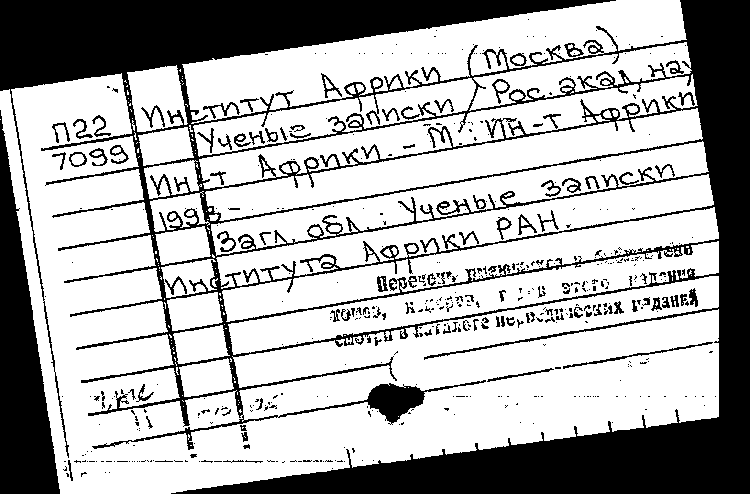 П22
7099
Институт Африки (Москва).
Ученые записки / Рос. акад. нау
Ин-т Африки. - М.: Ин-т Африки
1993-
Загл. обл.: Ученые записки
Института Африки РАН.
Перечень имеющихся в библиотеке
томов, номеров, годов этого издания
смотри в каталоге периодических изданий